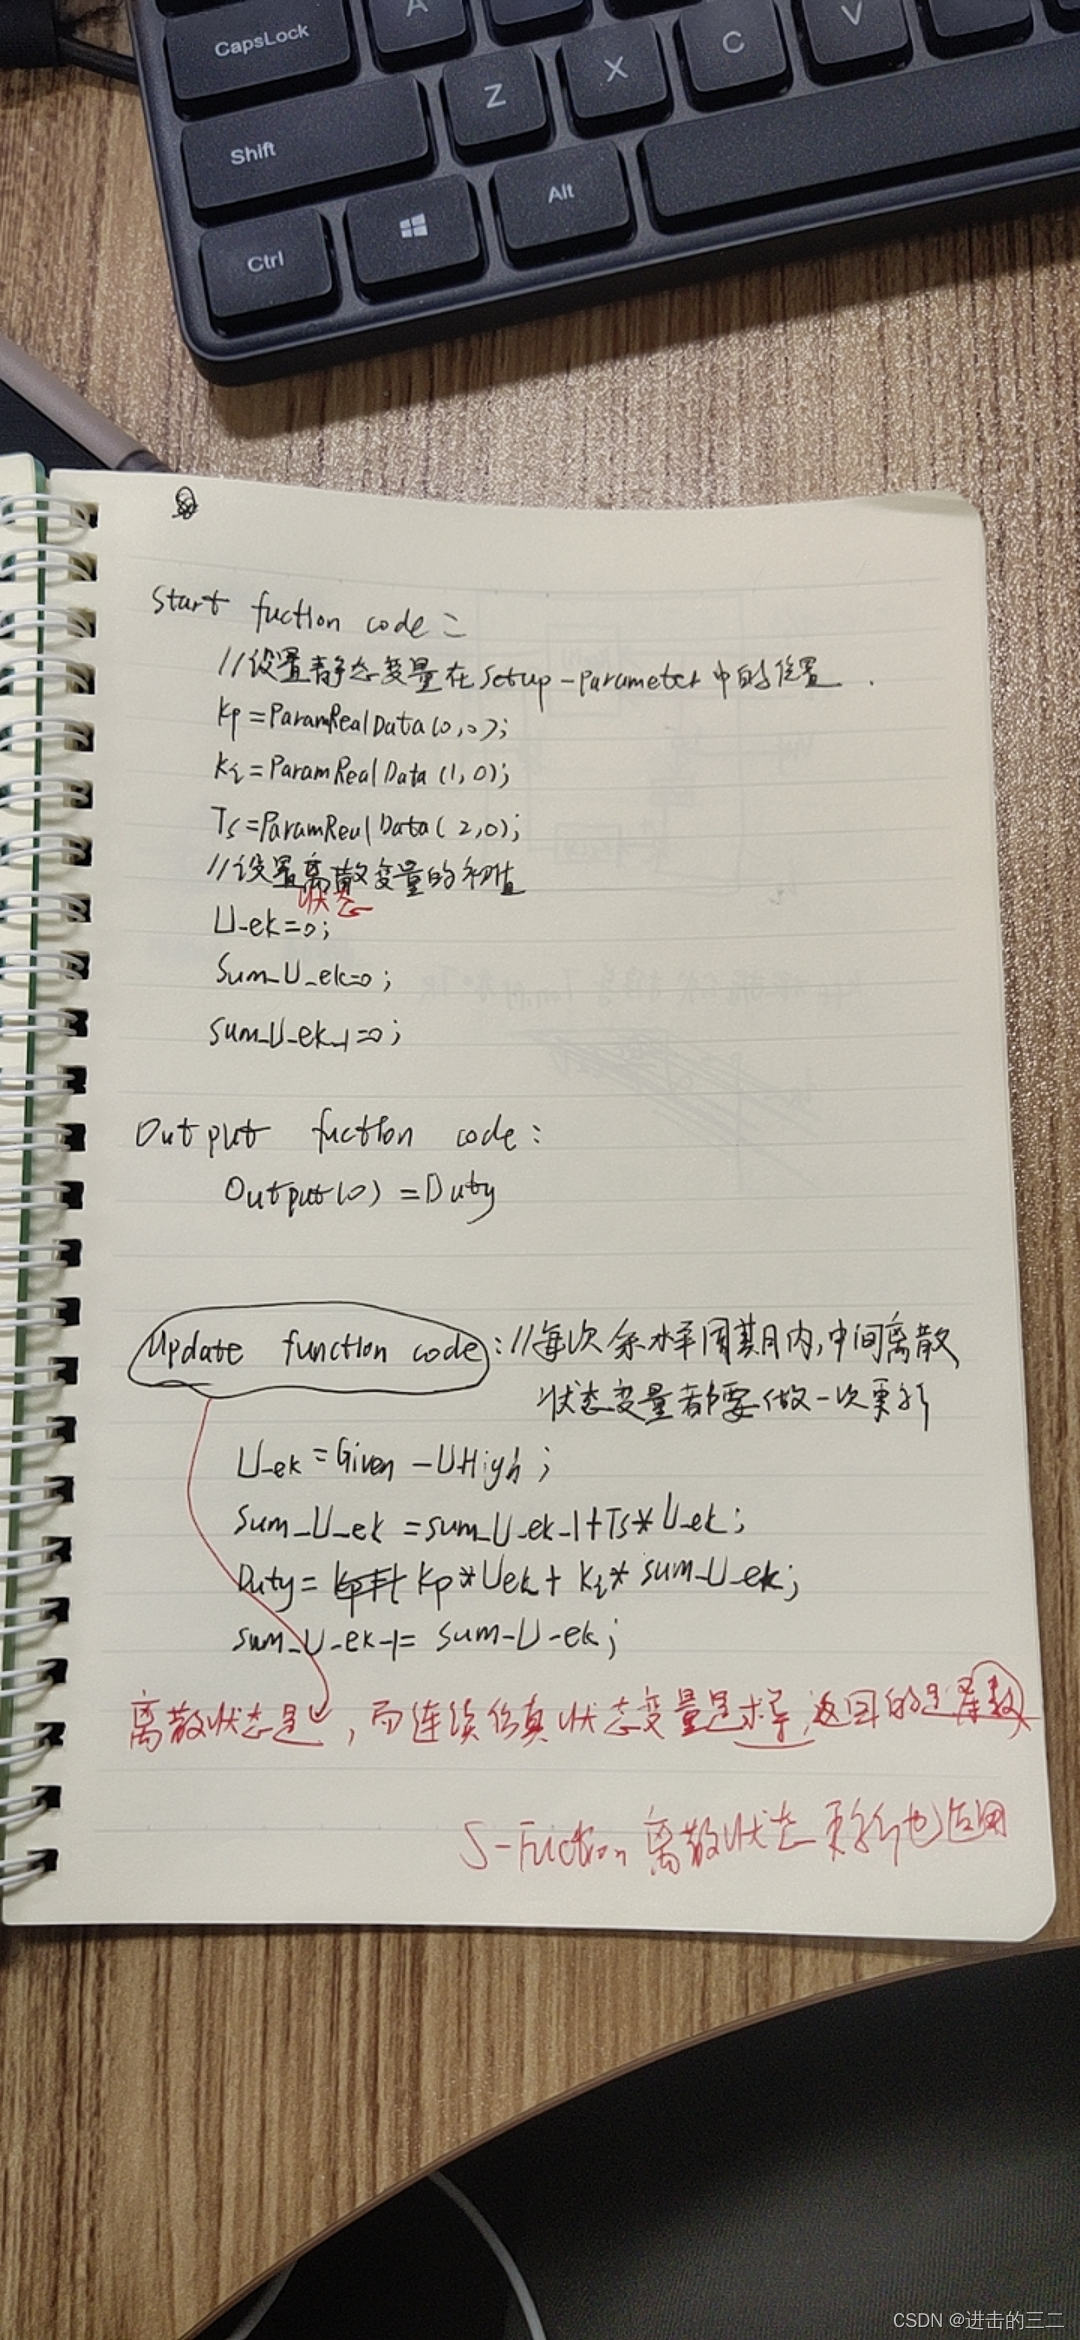 CapsLock
A
Z
X
C
V
Shift
Alt
Ctrl
Start fuction code:
//设置静态变量在Setup-Parameter中的位置.
Kp=ParamRealData(0,0);
Ki=ParamRealData(1,0);
Ts=ParamRealData(2,0);
//设置离散变量的初值
状态
U_ek=0;
Sum_U_ek=0;
sum_U_ek_1=0;
Output fuction code:
Output(0)=Duty
Update function code://每次采样周期内,中间离散
状态变量都要做一次更新
U_ek=Given-UHigh;
Sum_U_ek=sum_U_ek_1+Ts*U_ek;
Duty= Kp*Uek+Ki*sum_U_ek;
sum_U_ek_1=sum_U_ek;
离散状态是,而连续仿真状态变量是求导,返回的是导数
S-Fuction离散状态更新也适用
CSDN @进击的三二